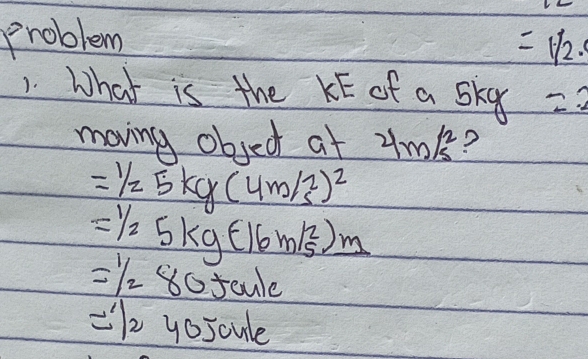 Problem
= 1/2.
1. What is the KE of a 5kg
moving object at 4m/s²?
= 1/2 5kg (4m/s²)²
= 1/2 5kg (16m/s²)m
= 1/2 80 joule
= 1/2 40 joule